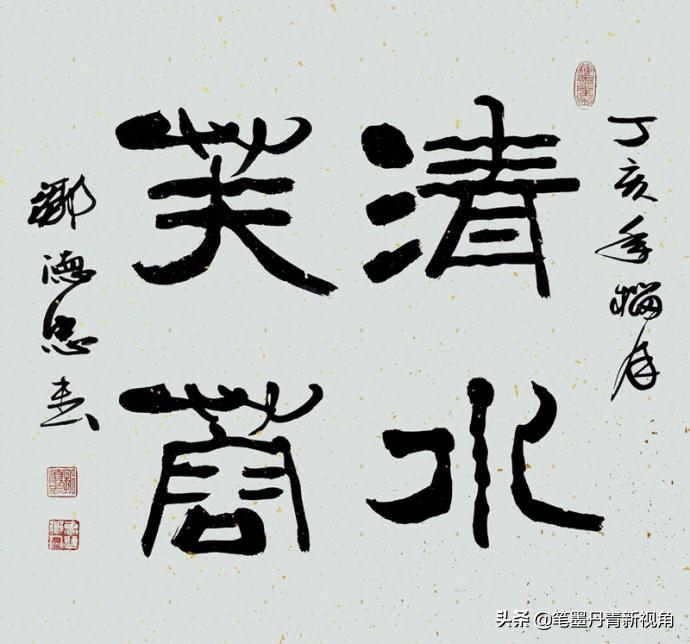 丁亥年臘月
清水
芙蓉
鄒德忠書
头条 @笔墨丹青新视角